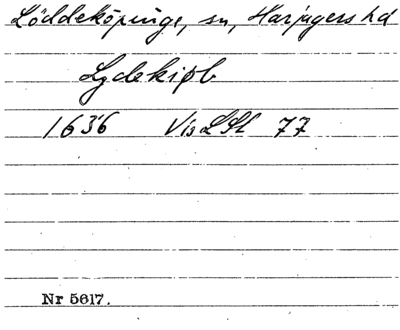 Löddeköpinge, sn, Harjagers hd
Lydekiøb
1636 Vis LSt 77
Nr 5617.